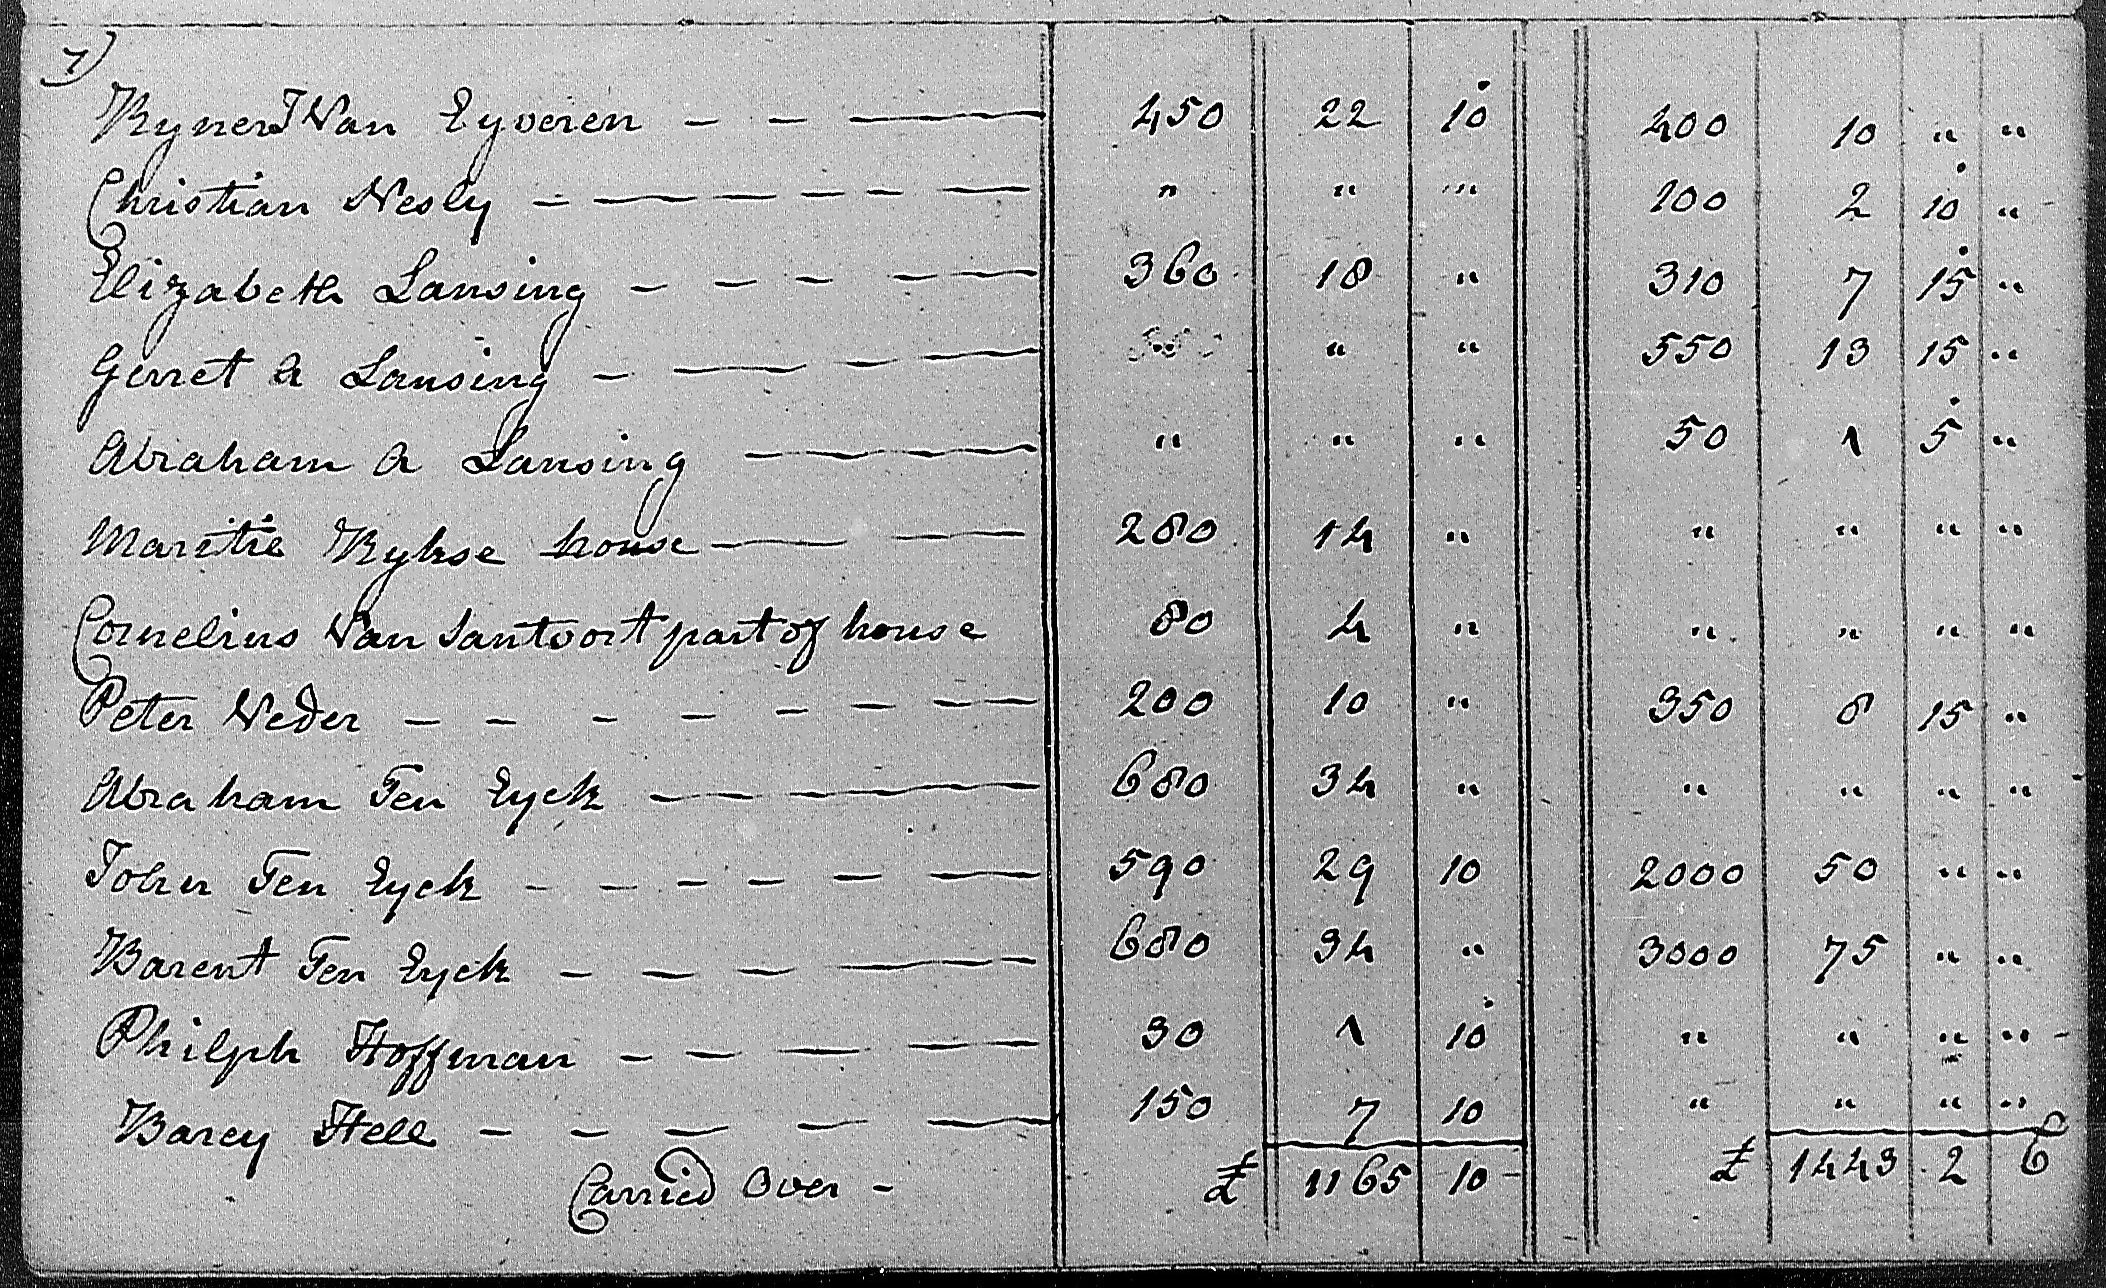 7)
Ryner J Van Eyveren - - — 450 22 10 400 10 " "
Christian Nesly - — — — - - — " " " 100 2 10 "
Elizabeth Lansing - - - - — — 360 18 " 310 7 15 "
Gerret A Lansing - — — — " " 550 13 15 "
Abraham A Lansing — — — " " " 50 1 5 "
Maritie Rykse house — — — 280 14 " " " " "
Cornelius Van Santvort part of house 80 4 " " " " "
Peter Veder - - - - - - - — 200 10 " 350 8 15 "
Abraham Ten Eyck — - — — 680 34 " " " " "
John Ten Eyck - - - - - — 590 29 10 2000 50 " "
Barent Ten Eyck - - - — — 680 34 " 3000 75 " "
Philph Hoffman - - — — 30 1 10 " " " "
Barey Hell - - — — — 150 7 10 " " " "
Carried Over - £ 1165 10 - £ 1443 2 6